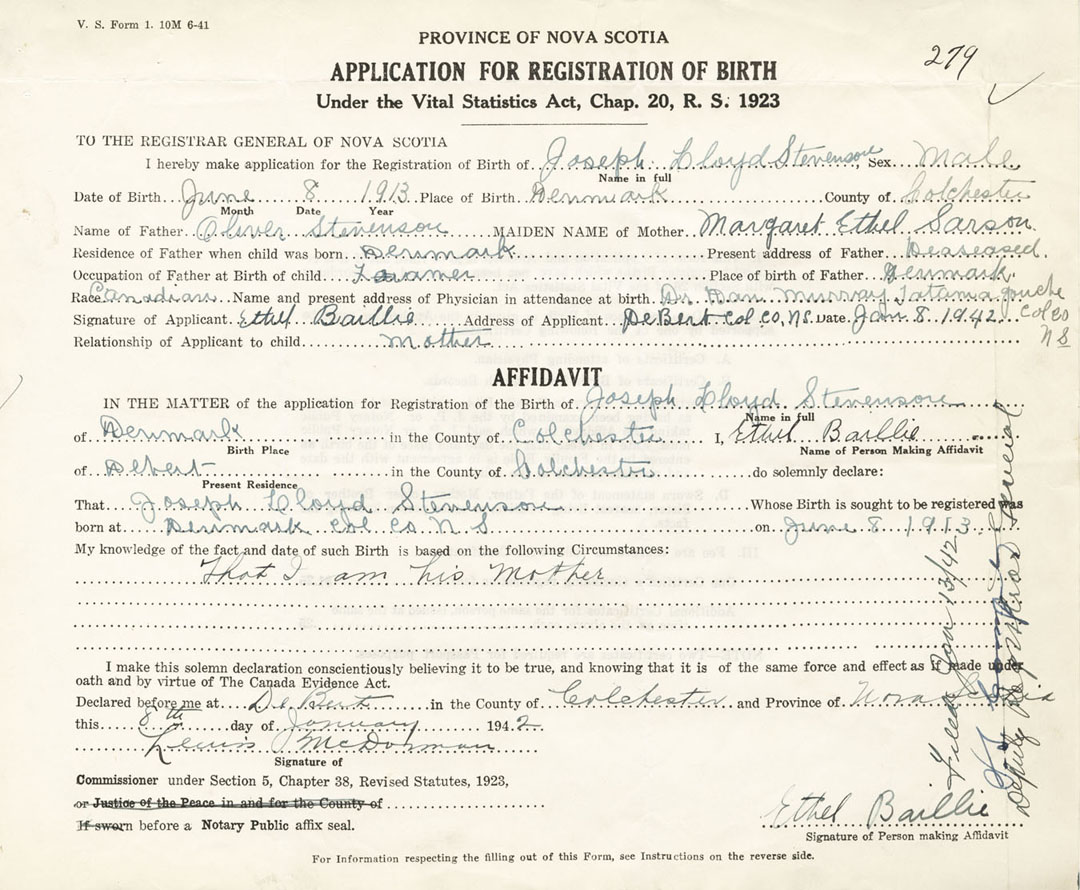 V. S. Form 1. 10M 6-41
PROVINCE OF NOVA SCOTIA
279
APPLICATION FOR REGISTRATION OF BIRTH
Under the Vital Statistics Act, Chap. 20, R. S. 1923
TO THE REGISTRAR GENERAL OF NOVA SCOTIA
I hereby make application for the Registration of Birth of Joseph Lloyd Stevenson, Sex Male
Name in full
Date of Birth June 8 1913 Place of Birth Denmark County of Colchester
Month Date Year
Name of Father Oliver Stevenson MAIDEN NAME of Mother Margaret Ethel Sarson
Residence of Father when child was born Denmark Present address of Father Deaseased
Occupation of Father at Birth of child Farmer Place of birth of Father Denmark
Race Canadian Name and present address of Physician in attendance at birth Dr. Dan Murray Tatamagouche
Col Co
N S
Signature of Applicant Ethel Baillie Address of Applicant DeBert Col. Co, N.S. Date Jan 8 1942
Relationship of Applicant to child Mother
AFFIDAVIT
IN THE MATTER of the application for Registration of the Birth of Joseph Lloyd Stevenson
Name in full
of Denmark in the County of Colchester I, Ethel Baillie
Birth Place Name of Person Making Affidavit
of Debert in the County of Colchester do solemnly declare:
Present Residence
That Joseph Lloyd Stevenson Whose Birth is sought to be registered was
born at Denmark Col Co N S on June 8 1913
My knowledge of the fact and date of such Birth is based on the following Circumstances:
That I am his Mother
I make this solemn declaration conscientiously believing it to be true, and knowing that it is of the same force and effect as if made under
oath and by virtue of The Canada Evidence Act.
Declared before me at De Bert in the County of Colchester and Province of Nova Scotia
this 8th day of January 1942
Lewis McDorman
Signature of
Commissioner under Section 5, Chapter 38, Revised Statutes, 1923,
or Justice of the Peace in and for the County of
If sworn before a Notary Public affix seal.
Ethel Baillie
Signature of Person making Affidavit
For Information respecting the filling out of this Form, see Instructions on the reverse side.
Filed Jan 13/42
Deputy Registrar General